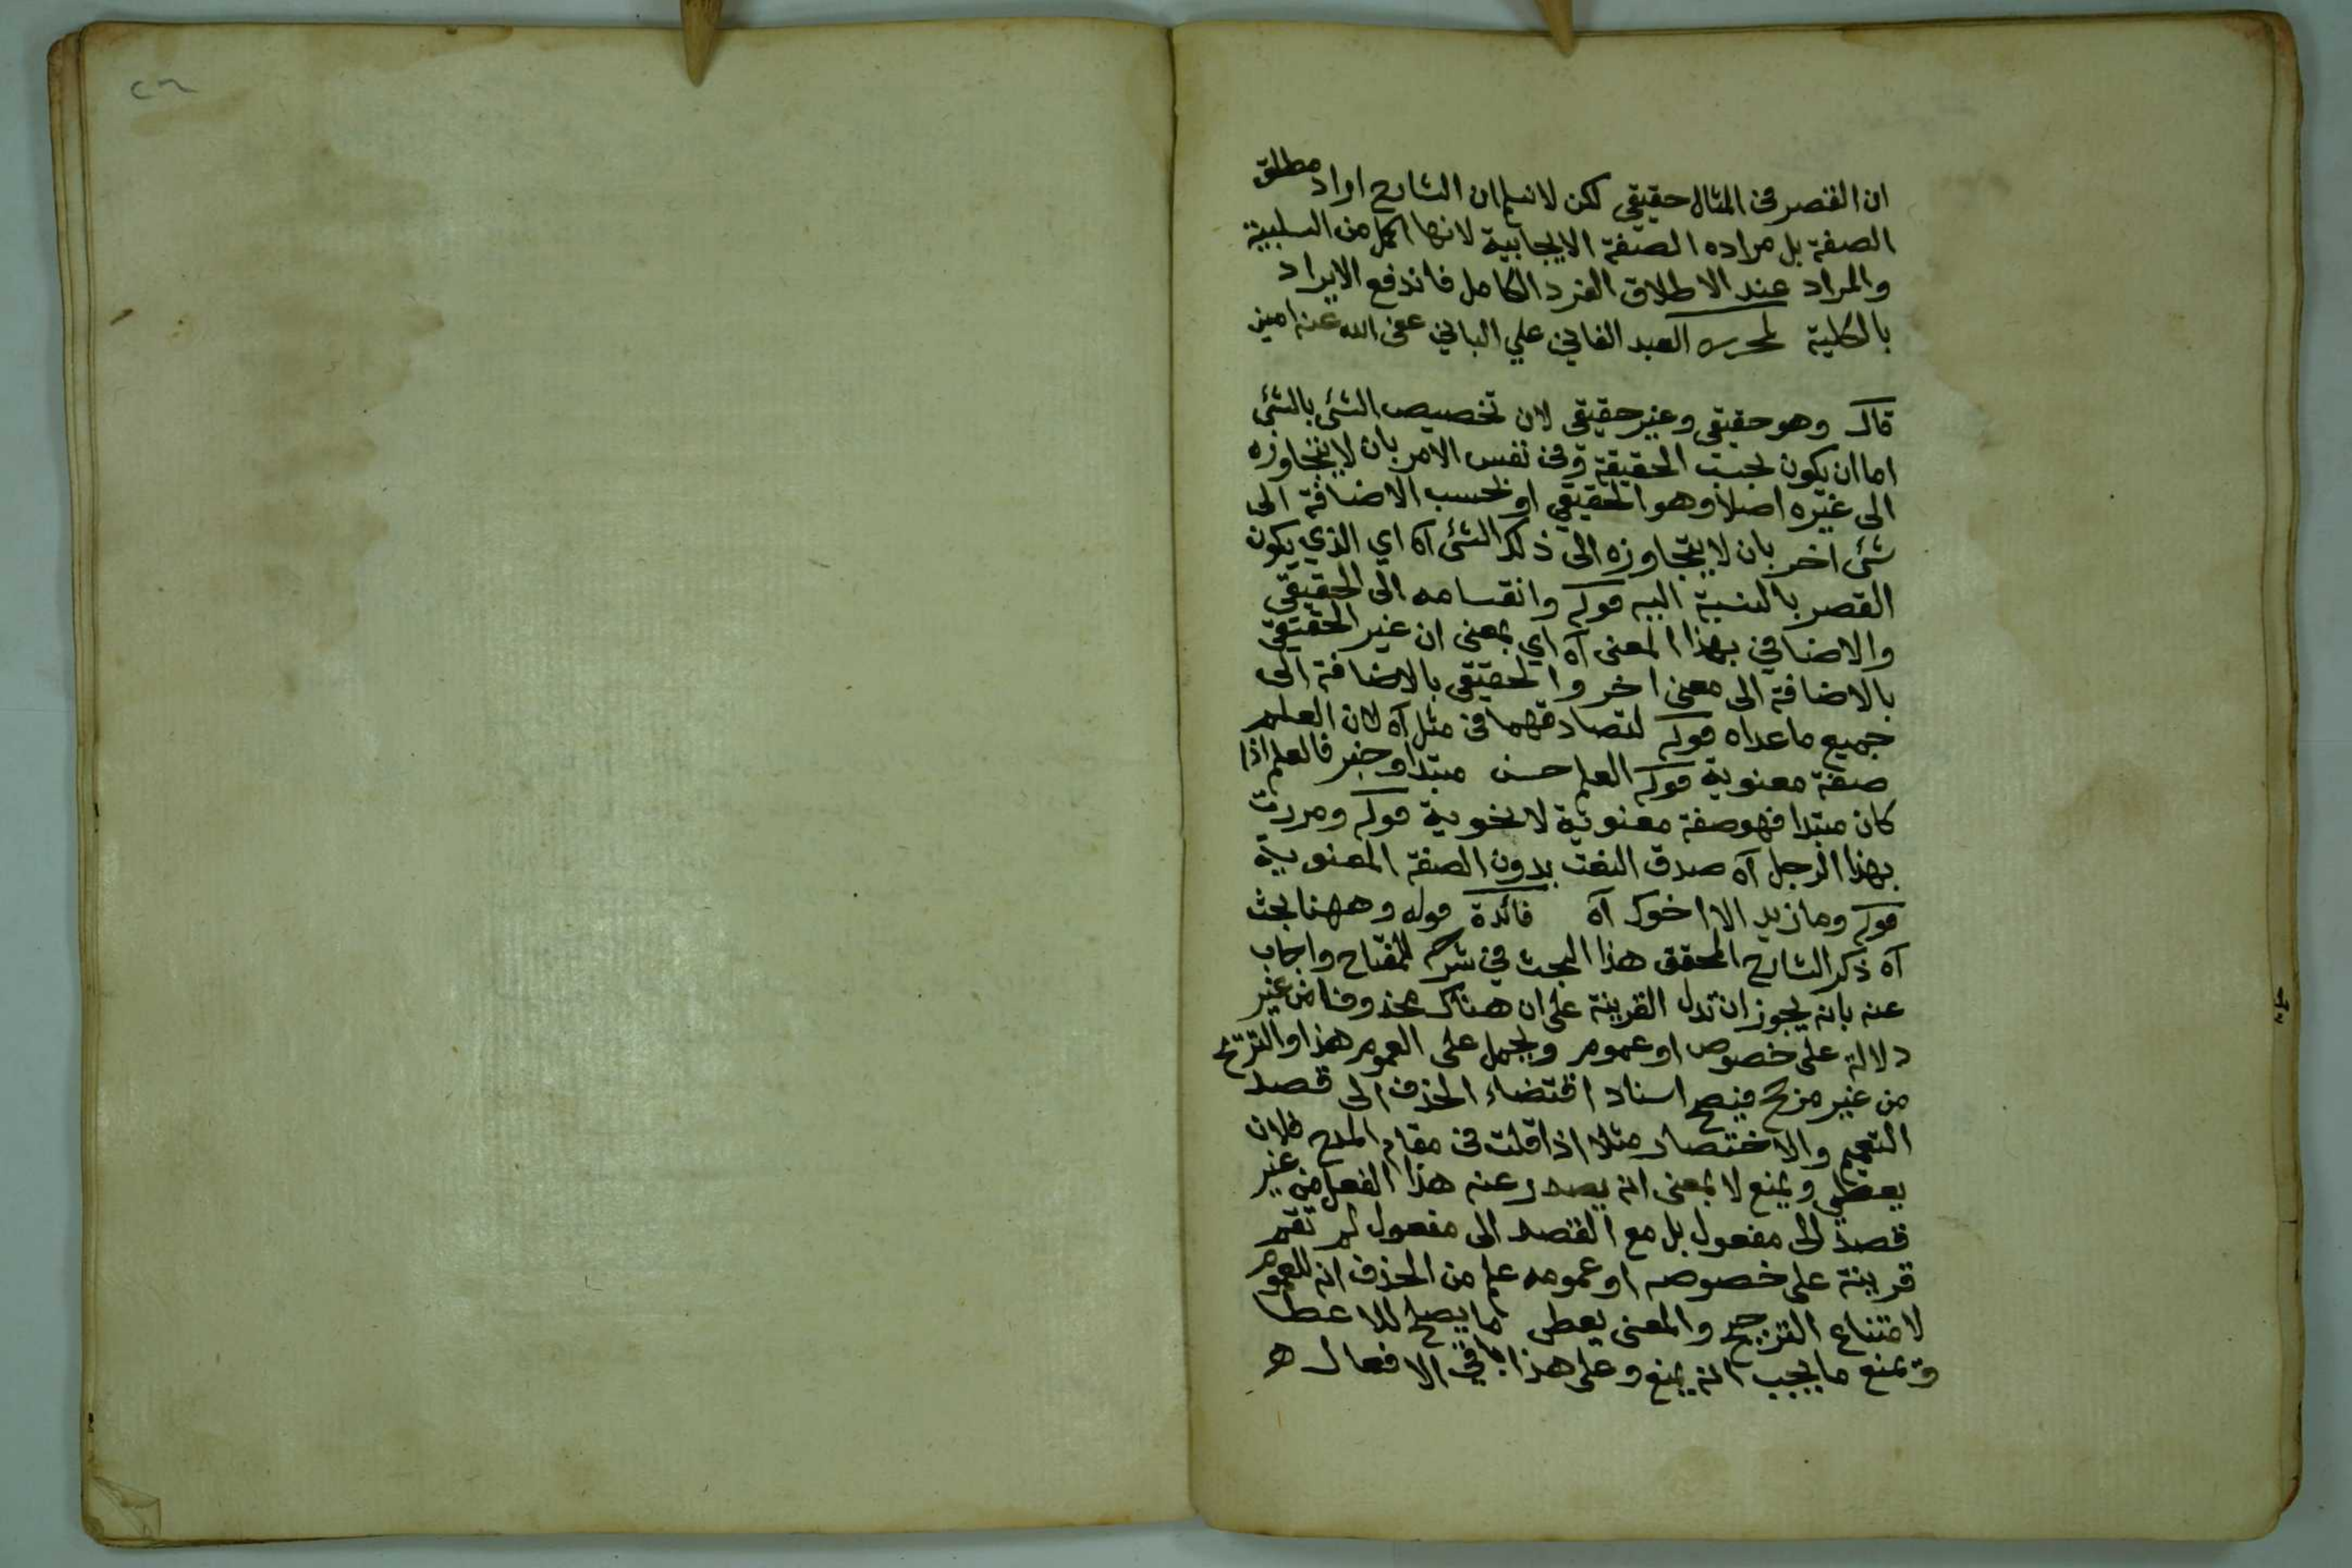 ان القصر فى المثال حقيقى لكن لا نسلم ان الشارح اراد مطلق
الصفة بل مراده الصفة الايجابية لانها اكمل من السلبية
والمراد عند الاطلاق الفرد الكامل فاندفع الايراد
بالكلية لمحرره العبد الفاني علي الباني عفى الله عنه امين
قال وهو حقيقى وغير حقيقى لان تخصيص الشئ بالشئ
اما ان يكون بحسب الحقيقة وفى نفس الامر بان لا يتجاوزه
الى غيره اصلا وهو الحقيقي او بحسب الاضافة الى
شئ اخر بان لا يتجاوزه الى ذلك الشئ آه اي الذي يكون
القصر بالنسبة اليه قوله وانقسامه الى الحقيقي
والاضافي بهذا المعنى آه اي بمعنى ان غير الحقيقي
بالاضافة الى معنى اخر والحقيقى بالاضافة الى
جميع ما عداه قوله لتصادقهما فى مثل آه لان العلم
صفة معنوية قوله العلم حسن مبتدا وخبر فالعلم اذا
كان مبتدا فهو صفة معنوية لا نحوية قوله ومررت
بهذا الرجل آه صدق النعت بدون الصفة المعنوية
قوله وما زيد الا اخوك آه فائدة قوله وههنا بحث
آه ذكر الشارح المحقق هذا البحث في شرح المفتاح واجاب
عنه بانه يجوز ان تدل القرينة على ان هناك محذوفا من غير
دلالة على خصوص او عموم ويحمل على العموم هذا والترجح
من غير مرجح فيصح اسناد اقتضاء الحذف الى قصد
التعميم والاختصار مثلا اذا قلت فى مقام المدح فلان
يعطي ويمنع لا بمعنى انه يصدر عنه هذا الفعل من غير
قصد الى مفعول بل مع القصد الى مفعول لم تقم
قرينة على خصوصه او عمومه علم من الحذف انه للعموم
لامتناع الترجيح والمعنى يعطى ما يصلح للاعطا
ويمنع ما يجب انه يمنع وعلى هذا باقي الافعال ه
٢٦